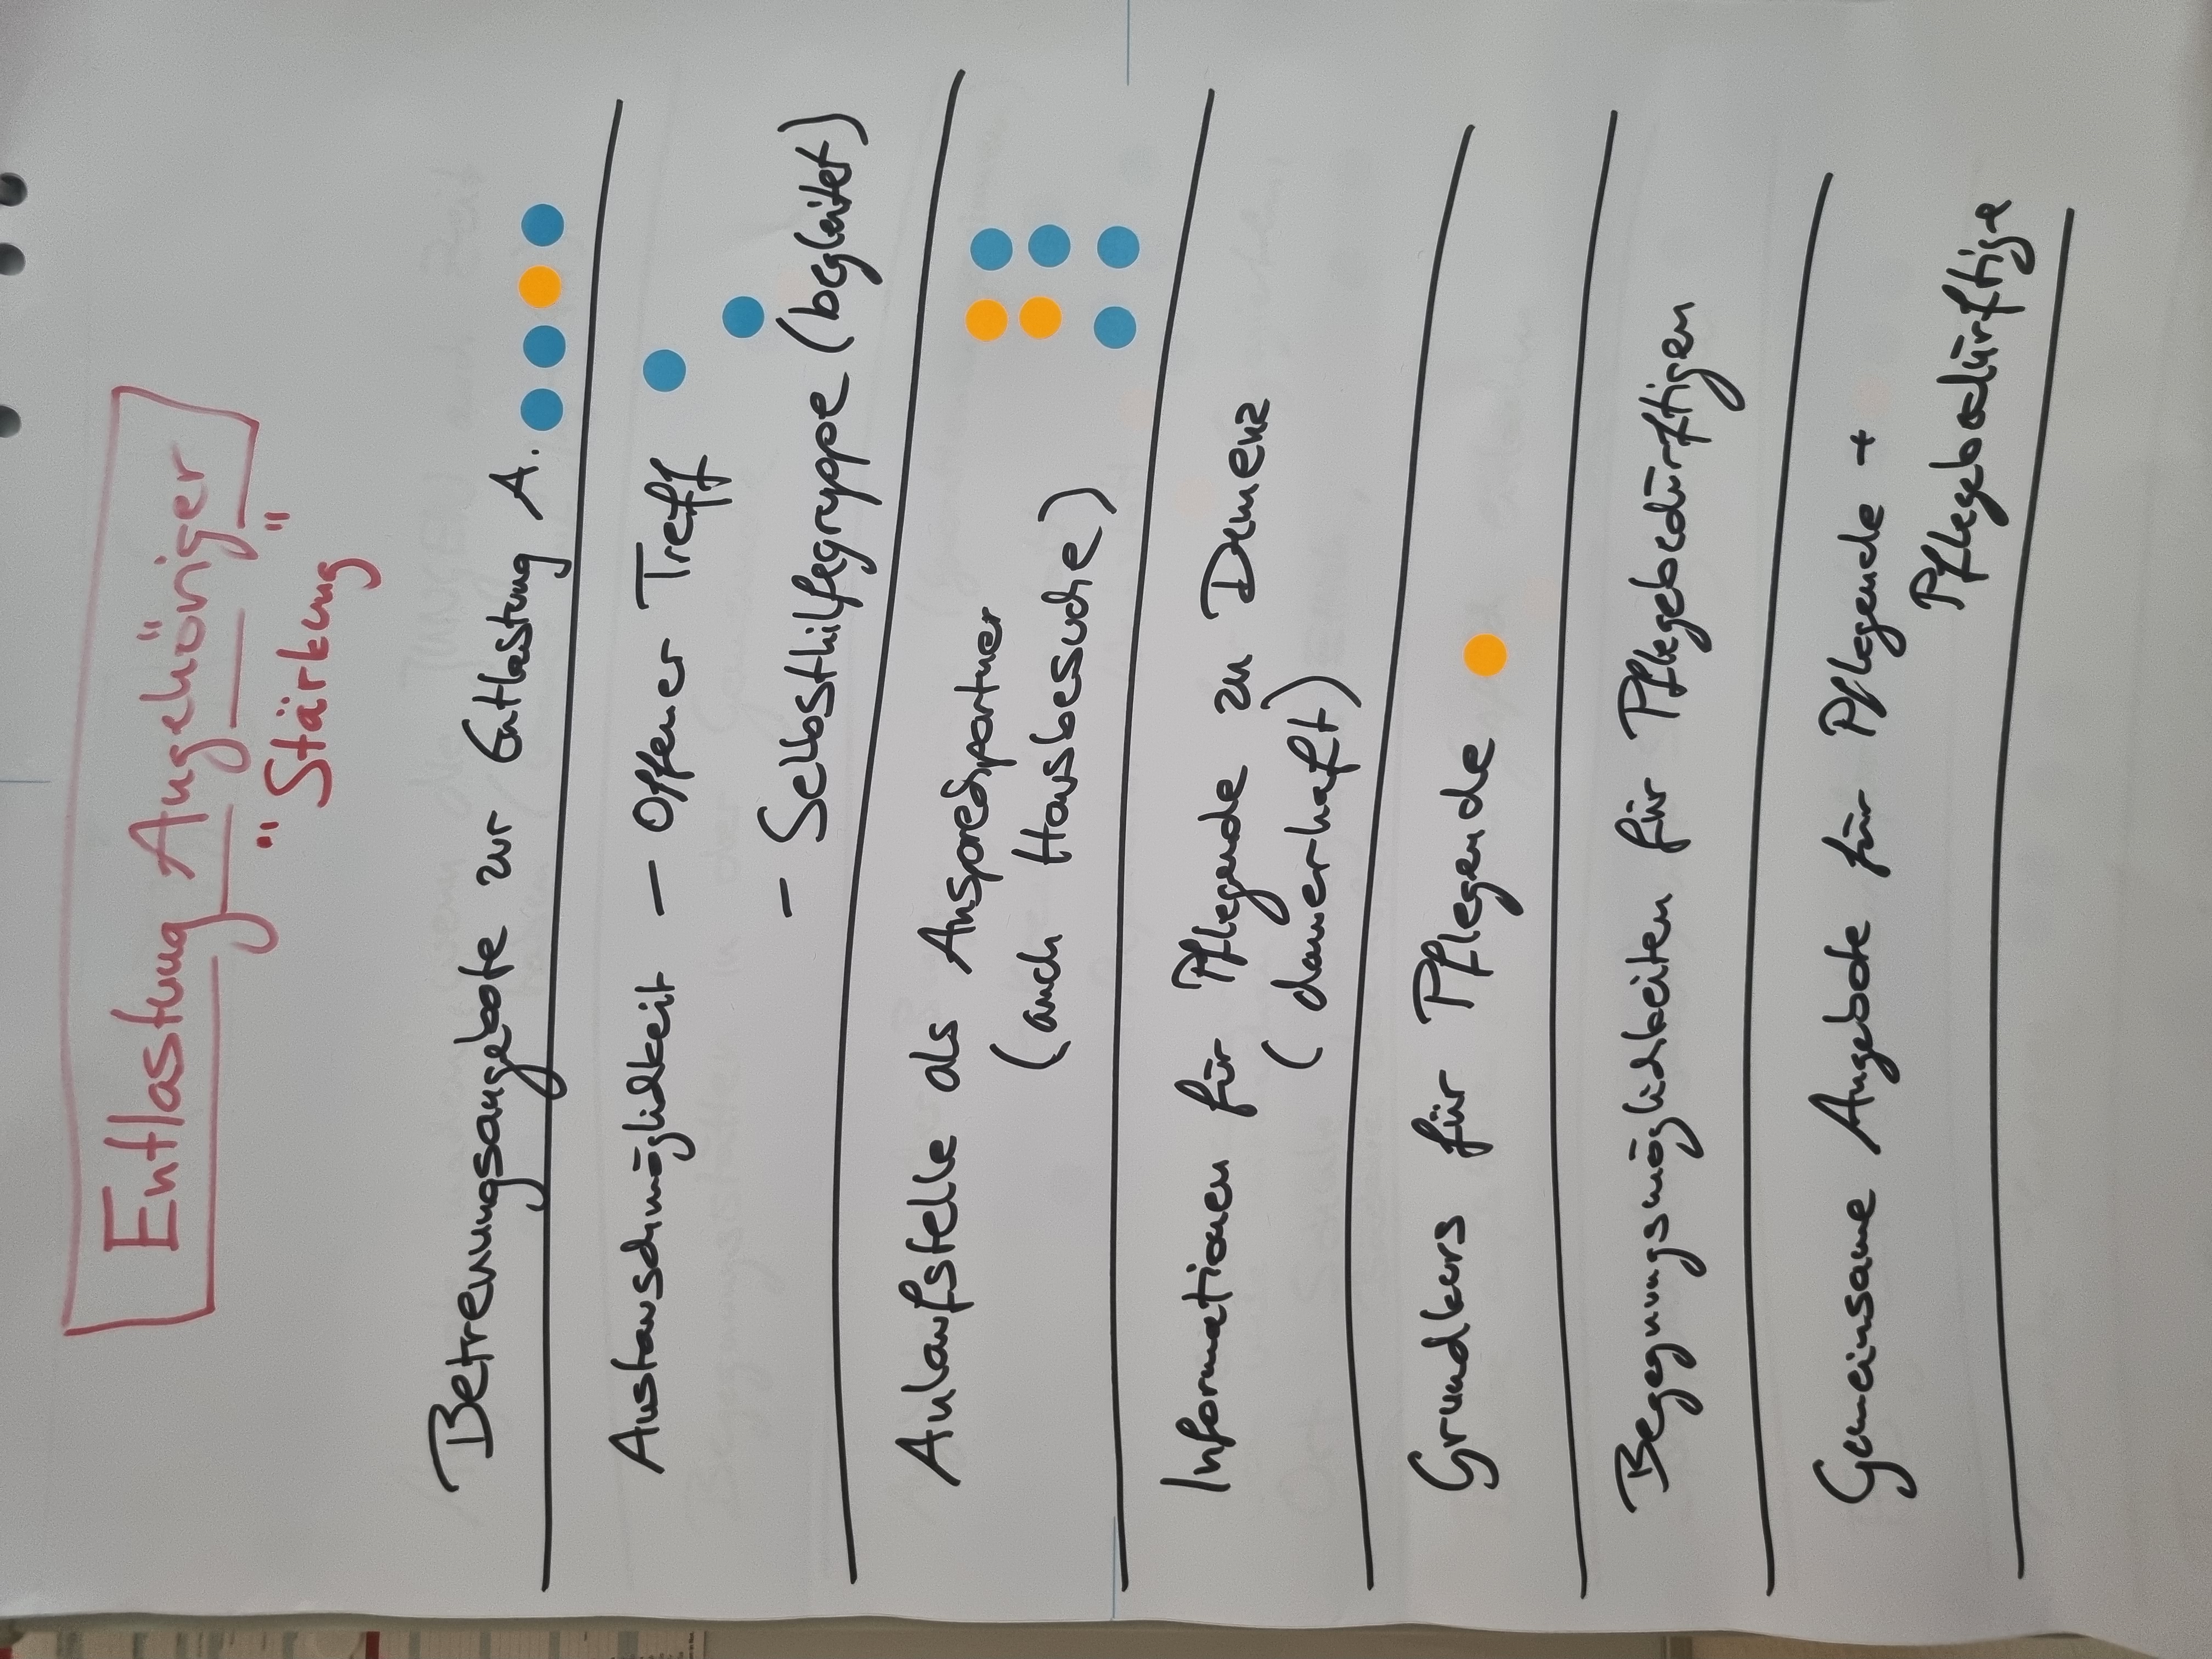 Entlastung Angehöriger
"Stärkung"
Betreuungsangebote zur Entlastung A.
Austauschmöglichkeit - Offener Treff
- Selbsthilfegruppe (begleitet)
Anlaufstelle als Ansprechpartner
(auch Hausbesuche)
Informationen für Pflegende zu Demenz
(dauerhaft)
Grundkurs für Pflegende
Begegnungsmöglichkeiten für Pflegebedürftigen
Gemeinsame Angebote für Pflegende +
Pflegebedürftige